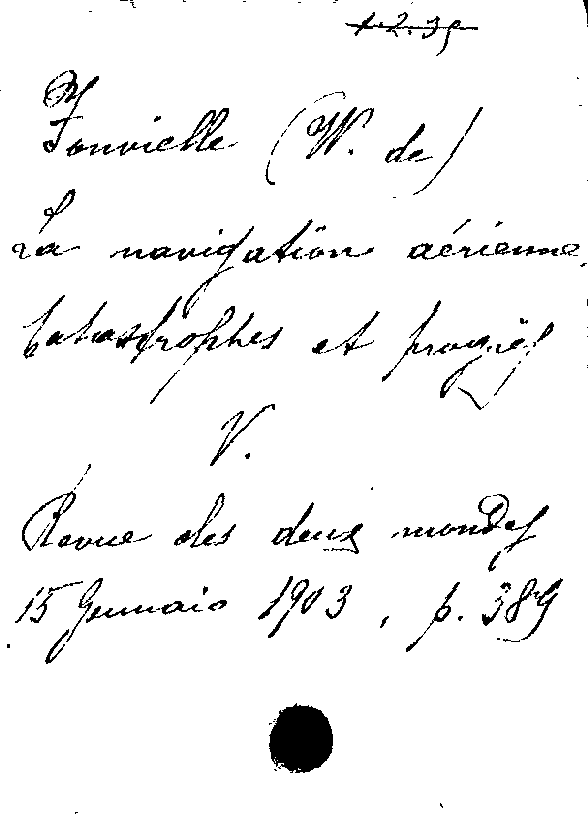 1.2.35
Fonvielle (W. de)
La navigation aérienne,
Catastrophes et progrès
V.
Revue des deux mondes
15 Gennaio 1903, p. 389